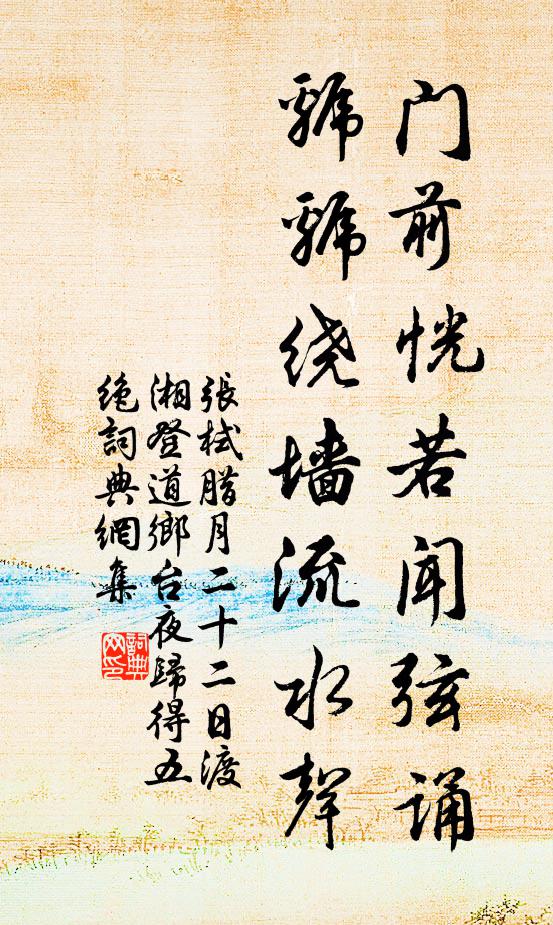 门前恍若闻弦诵
虢虢绕墙流水聲
張栻腊月二十二日渡
湘登道鄉台夜歸得五
絶詞典網集
詞典网印